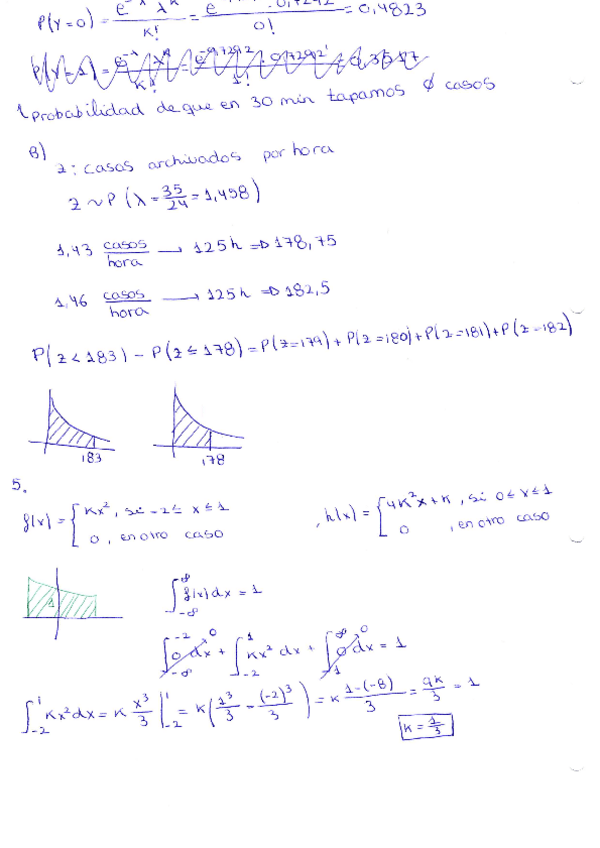 P(Y=0) = e^-λ λ^k / K! = e 0,7292 / 0! = 0,4823
probabilidad de que en 30 min tapamos ∅ casos
B)
Z: casos archivados por hora
Z ~ P (λ = 35/24 = 1,458)
1,43 casos/hora → 125 h ⇒ 178,75
1,46 casos/hora → 125 h ⇒ 182,5
P(Z < 183) - P(Z ≤ 178) = P(Z=179) + P(Z=180) + P(Z=181) + P(Z=182)
183 178
5.
f(x) = { Kx², si -2 ≤ x ≤ 1 , h(x) = { 4K²x + K, si 0 ≤ x ≤ 1
0, en otro caso 0, en otro caso
1
∫_-∞^∞ f(x) dx = 1
∫_-∞^-2 0 dx 0 + ∫_-2^1 Kx² dx + ∫_1^∞ 0 dx 0 = 1
∫_-2^1 Kx² dx = K x³/3 |_-2^1 = K (1³/3 - (-2)³/3) = K 1-(-8)/3 = 9K/3 = 1
K = 1/3